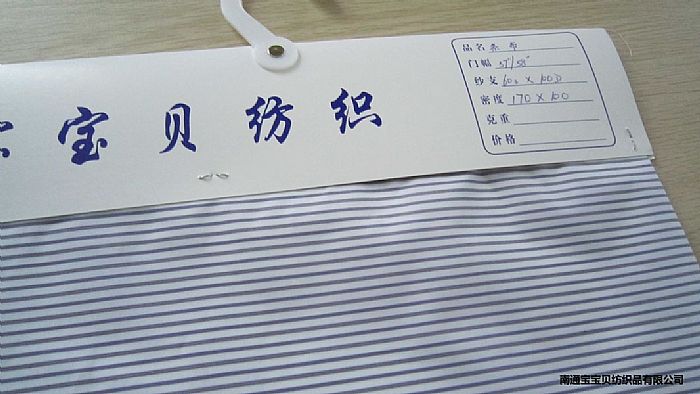 宝贝纺织
品名 条布
门幅 57/58"
纱支 60s X 100D
密度 170 X 100
克重
价格
南通宝宝贝纺织品有限公司